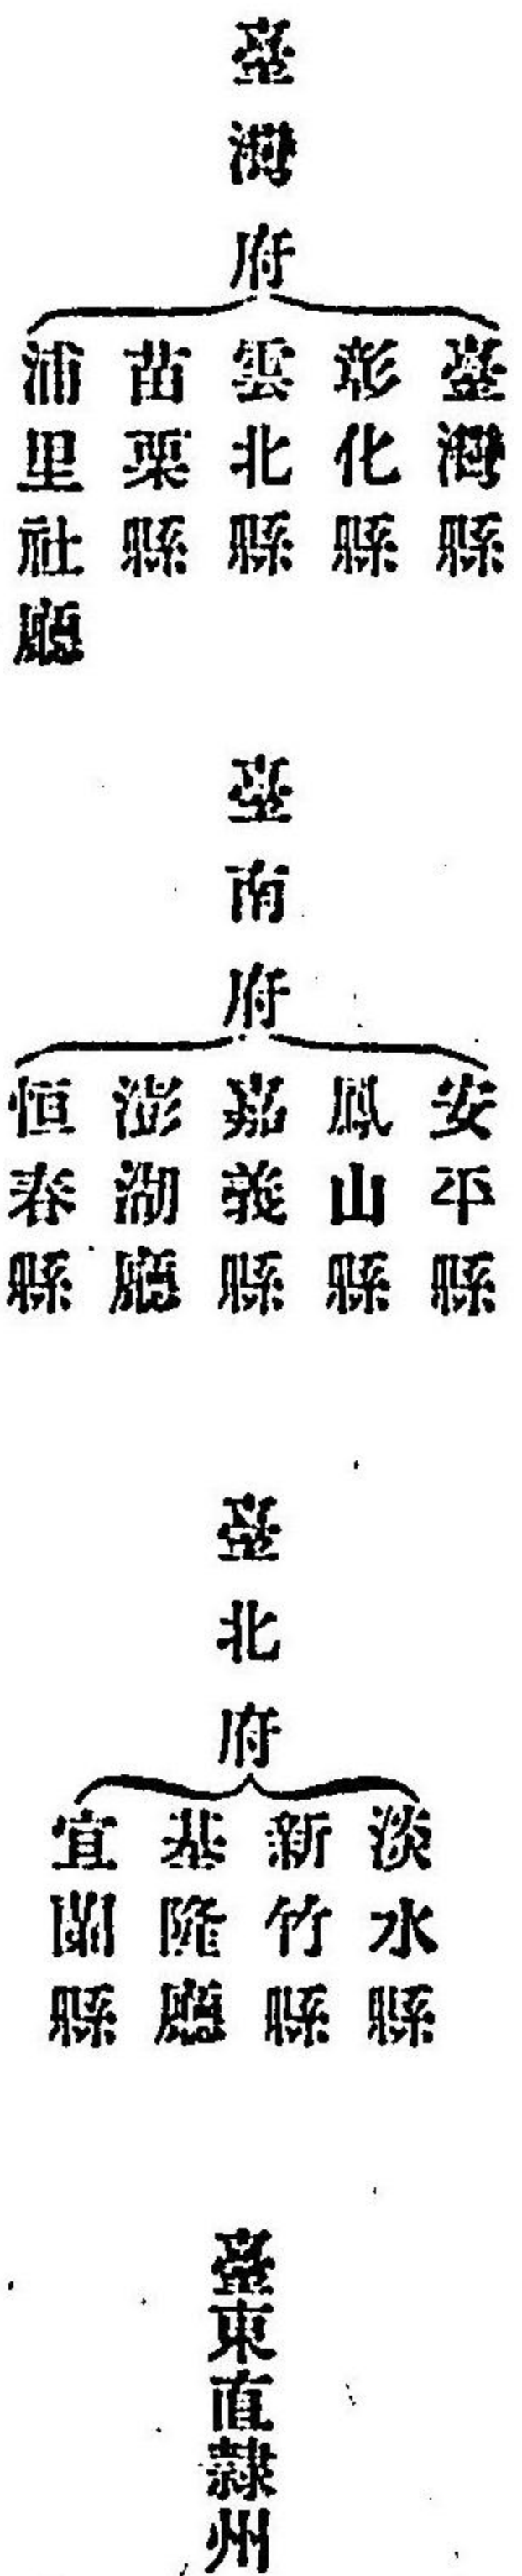 臺灣府
臺灣縣
彰化縣
雲北縣
苗栗縣
浦里社廳
臺南府
安平縣
鳳山縣
嘉義縣
澎湖廳
恒春縣
臺北府
淡水縣
新竹縣
基隆廳
宜蘭縣
臺東直隷州